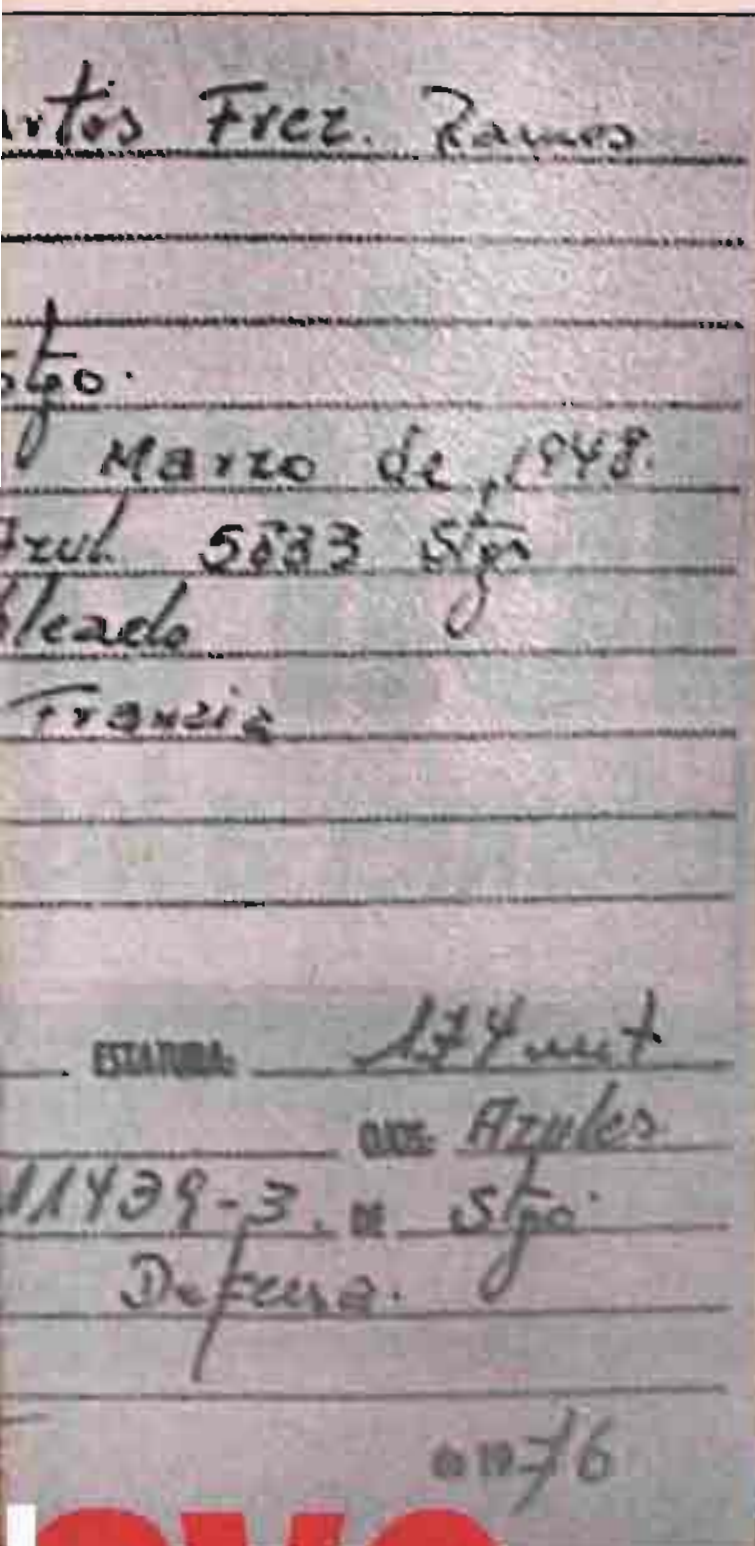 rtos Frez. Ramos
stgo.
Marzo de, 1948.
Azul. 5833 Stgo
pleado
Francia
ESTATURA: 174 mt
OJOS: Azules
11439-3. DE Stgo.
Defensa.
DE 1976